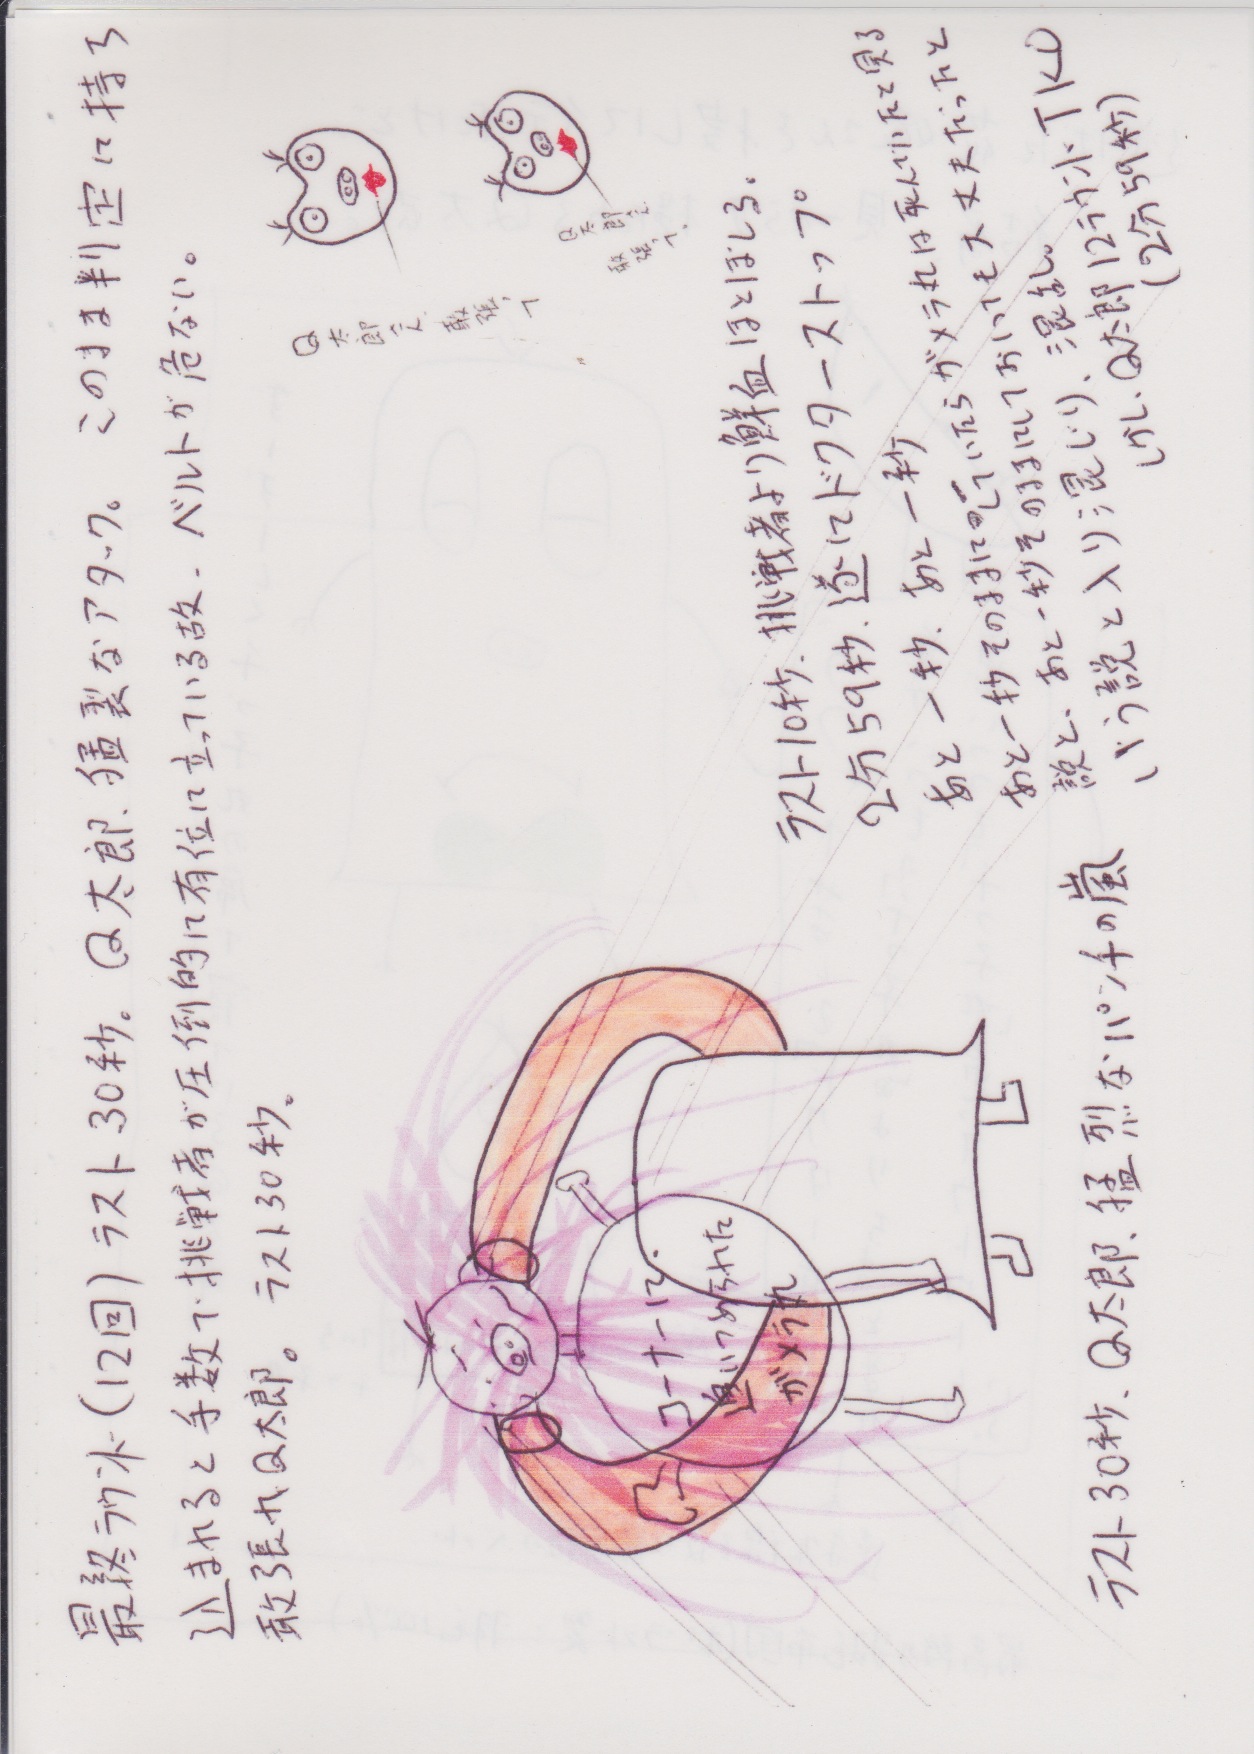 最終ラウンド(12回)ラスト30秒。Q太郎、猛烈なアタック。このまま判定に持ち
込まれると手数で挑戦者が圧倒的に有位に立っている故、ベルトが危ない。
敢張れQ太郎。ラスト30秒。
Q太郎之
敢張って
Q太郎之
敢張って
コーナーに
追いつめられた
ガメラれ
ラスト10秒、挑戦者より鮮血ほとぼしる。
2分59秒、遂にドクターストップ
あと一秒、あと一秒
あと一秒そのままにしていたらガメラれは死んでいたと見る
説と、あと一秒そのままにしておいてもメ丈夫だったと
いう説と入り混じり、混乱。
しかし、Q太郎12ラウンドTKO
(2分59秒)
ラスト30秒、Q太郎、猛烈なパンチの嵐